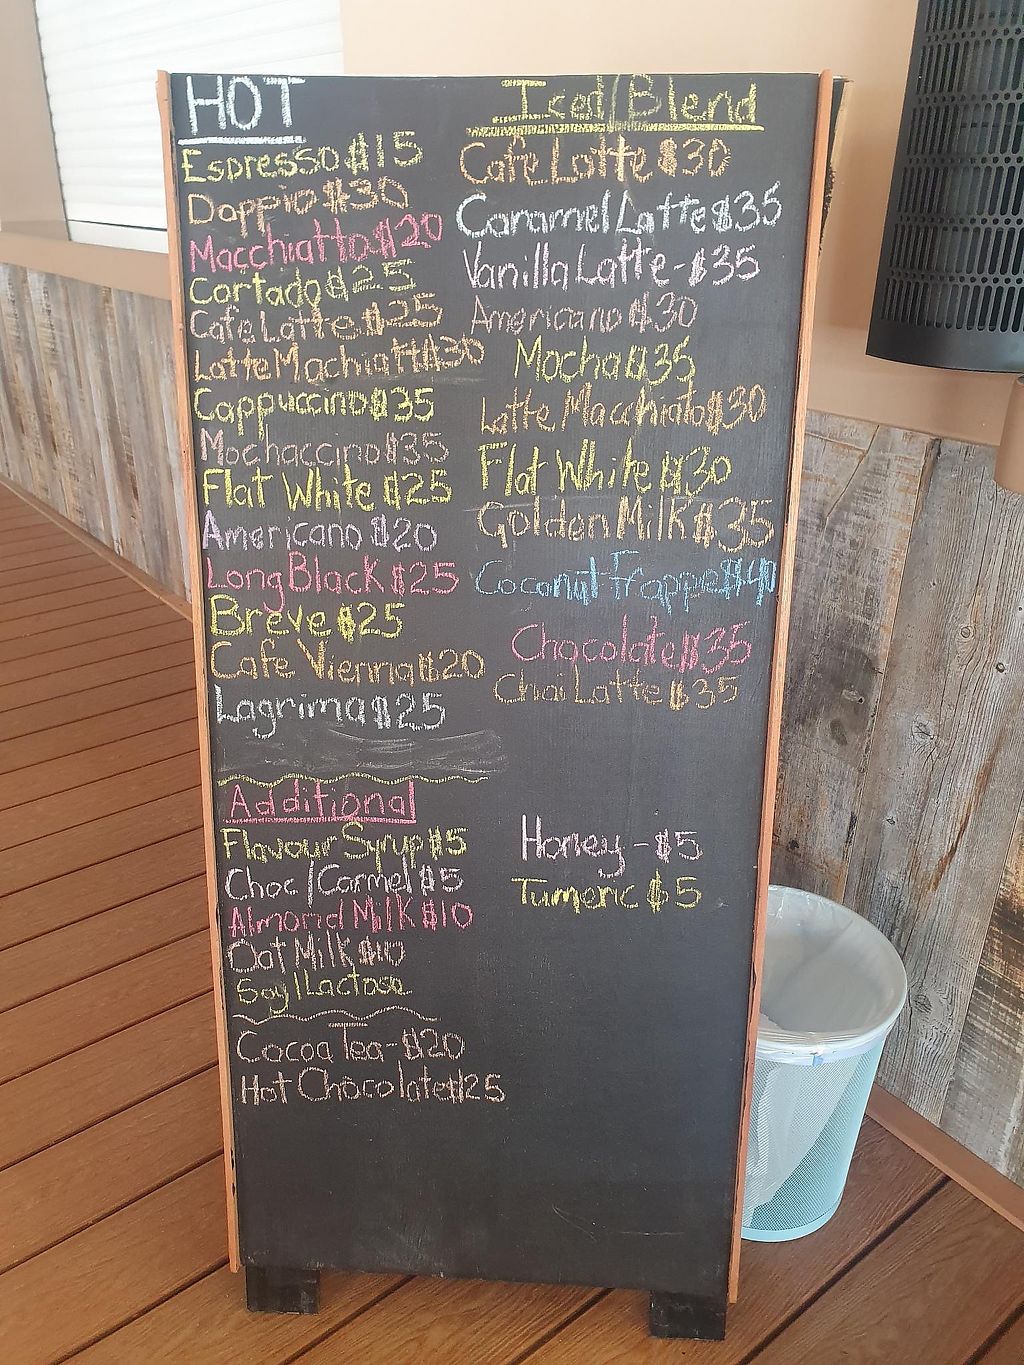 HOT
Espresso $15
Doppio $30
Macchiatto $20
Cortado $25
Cafe Latte $25
Latte Machiatt $30
Cappuccino $35
Mochaccino $35
Flat White $25
Americano $20
Long Black $25
Breve $25
Cafe Vienna $20
Lagrima $25
Iced/Blend
Cafe Latte $30
Caramel Latte $35
Vanilla Latte - $35
Americano $30
Mocha $35
Latte Macchiato $30
Flat White $30
Golden Milk $35
Coconut Frappe $40
Chocolate $35
Chai Latte $35
Additional
Flavour Syrup $5
Choc/Carmel $5
Almond Milk $10
Oat Milk $10
Soy/Lactose
Honey - $5
Tumeric $5
Cocoa Tea - $20
Hot Chocolate $25